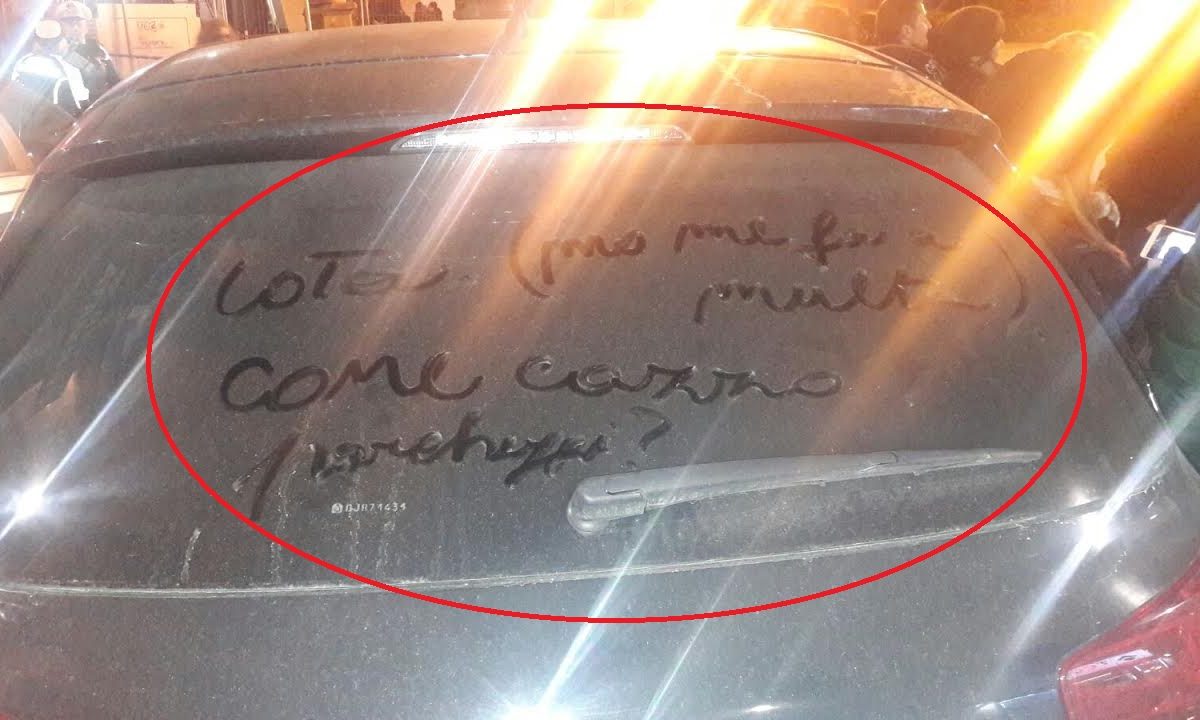 LOTa. (mo me fai a
multa)
COME cazzo
parcheggi?
DJR71431